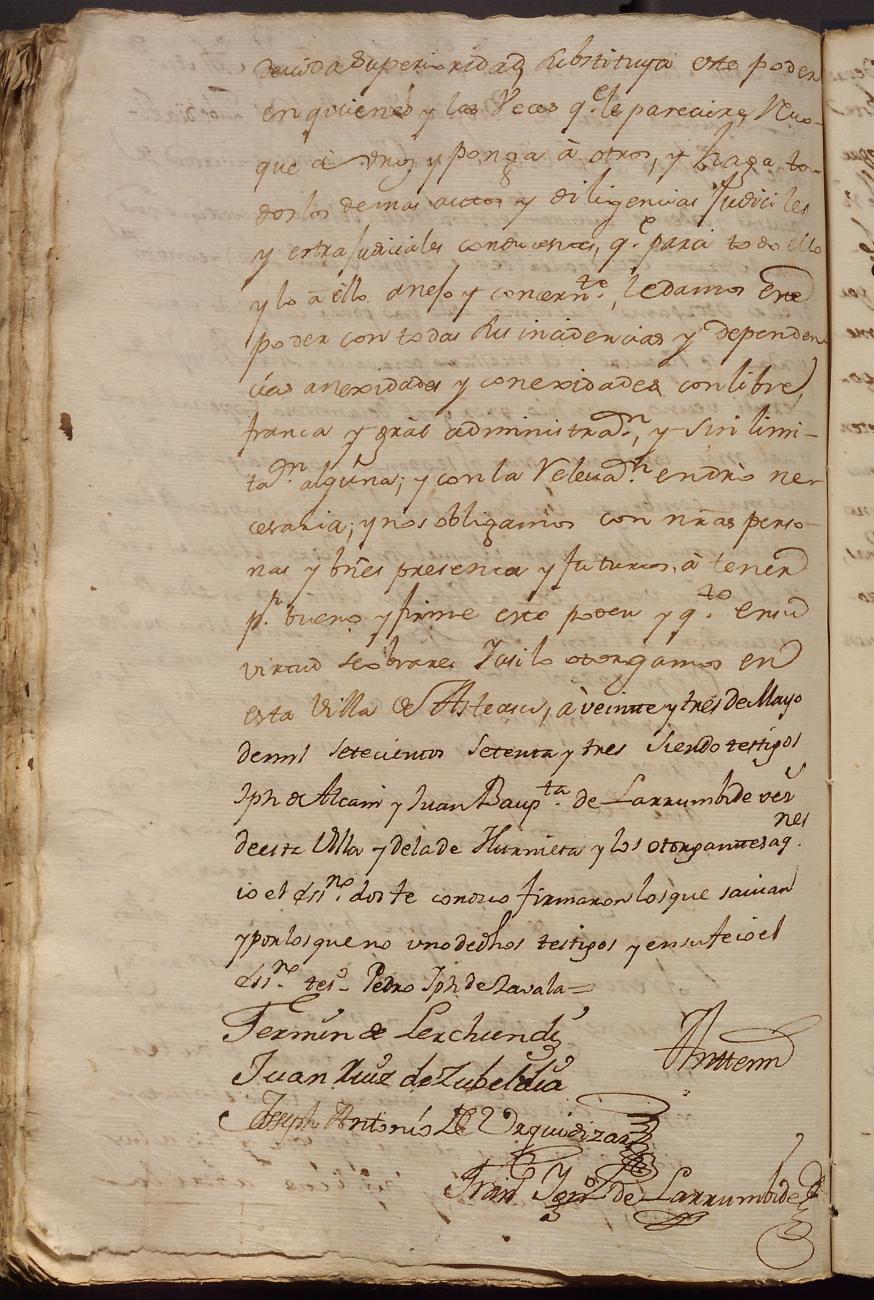 devida Superioridad substituya este poder
en quienes y las Veces q.e le pareciere, Rebo-
que â unos y ponga â otros, y haga to-
dos los demas autos y diligencias Judiciles
y extraJudiciales conducentes, q.e para todo ello
y lo â ello anejo y concern.te, le damos este
poder con todas sus incidencias y dependen
cias anexidades y conexidades, con libre,
franca y gräl administra.on, y sin limi-
ta.on alguna; y con la Releva.on en drõ ne-
cesaria; y nos obligamos con nr̃as perso-
nas y bñes presentes y futuros, â tener
p.r bueno y firme este poder y q.to en su
virtud se obrare, Y asi lo otorgamos en
esta Villa de Asteasu, â veinte y tres de Mayo
de mil setecientos setenta y tres siendo testigos
Jph de Alcain y Juan Baup.ta de Larrumbide vez
nes
de esta Villa y de la de Hurnieta y los otorgantes aq.
io el Ess.no doi fe conozco firmaron los que savian
y por los que no uno de dhos testigos y en su fe io el
Ess.no tes.o Pedro Jph de Zavala=
Fermin de Lerchundi
Anttemi
Juan Ruiz de Zubeldia
Joseph Antonio de Urquidizar
Fran.co Ign.o de Larrumbide